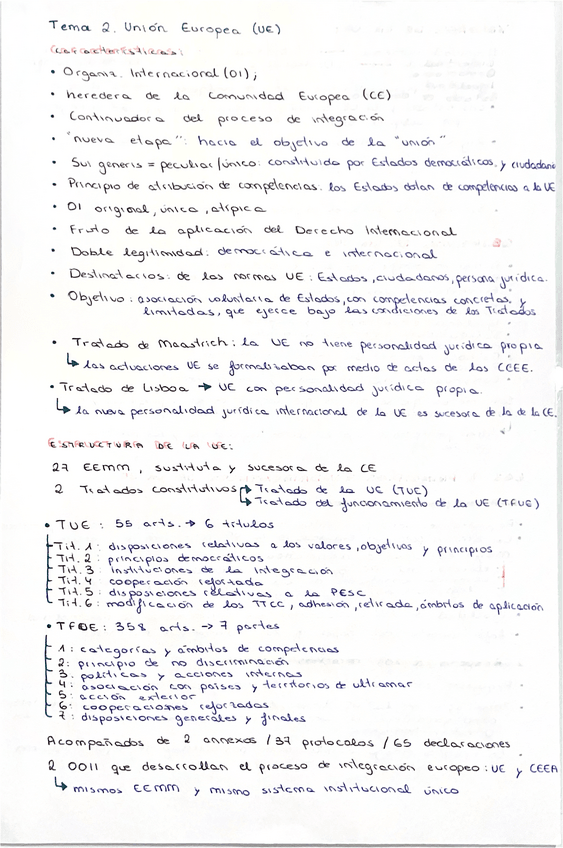 Tema 2. Unión Europea (UE)
Características:
• Organiz. Internacional (OI);
• heredera de la Comunidad Europea (CE)
• Continuadora del proceso de integración
• "nueva etapa": hacia el objetivo de la "unión"
• Sui generis = peculiar/único: constituida por Estados democráticos, y ciudadano
• Principio de atribución de competencias: los Estados dotan de competencias a la UE
• OI original, única, atípica
• Fruto de la aplicación del Derecho Internacional
• Doble legitimidad: democrática e internacional
• Destinatarios: de las normas UE: Estados, ciudadanos, persona jurídica.
• Objetivo: asociación voluntaria de Estados, con competencias concretas y
limitadas, que ejerce bajo las condiciones de los Tratados
• Tratado de Maastrich: la UE no tiene personalidad jurídica propia
↳ las actuaciones UE se formalizaban por medio de actos de las CCEE.
• Tratado de Lisboa → UE con personalidad jurídica propia.
↳ la nueva personalidad jurídica internacional de la UE es sucesora de la de la CE.
ESTRUCTURA DE LA UE:
27 EEMM, sustituta y sucesora de la CE
2 Tratados constitutivos → Tratado de la UE (TUE)
↳ Tratado del funcionamiento de la UE (TFUE)
• TUE: 55 arts. → 6 títulos
Tit. 1: disposiciones relativas a los valores, objetivos y principios
Tit. 2: principios democráticos
Tit. 3: instituciones de la integración
Tit. 4: cooperación reforzada
Tit. 5: disposiciones relativas a la PESC
Tit. 6: modificación de los TTCC, adhesión, retirada, ámbitos de aplicación
• TFUE: 358 arts. → 7 partes
1: categorías y ámbitos de competencias
2: principio de no discriminación
3. políticas y acciones internas
4: asociación con países y territorios de ultramar
5: acción exterior
6: cooperaciones reforzadas
7: disposiciones generales y finales
Acompañados de 2 annexos / 37 protocolos / 65 declaraciones
2 OOII que desarrollan el proceso de integración europeo: UE y CEEA
↳ mismos EEMM y mismo sistema institucional único